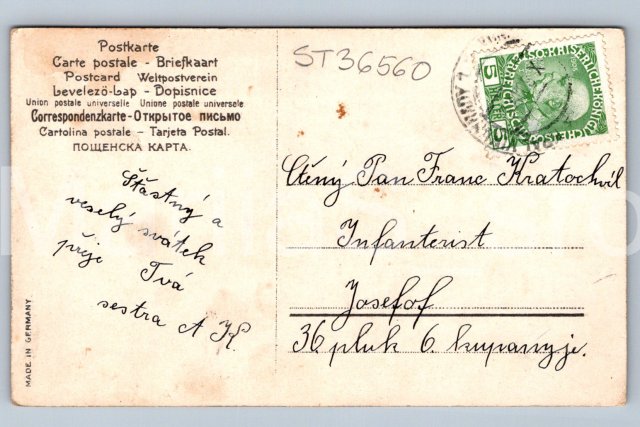 Postkarte
Carte postale - Briefkaart
Postcard Weltpostverein
Levelező-Lap - Dopisnice
Union postale universelle Unione postale universale
Correspondenzkarte - Открытое письмо
Cartolina postale - Tarjeta Postal.
ПОЩЕНСКА КАРТА.
ST36560
5
5
Ctěný Pan Franc Kratochvíl
Infanterist
Josefof
36 pluk 6. kupanyje.
Štástný a
veselý svátek
přeje Tvá
sestra A K
MADE IN GERMANY